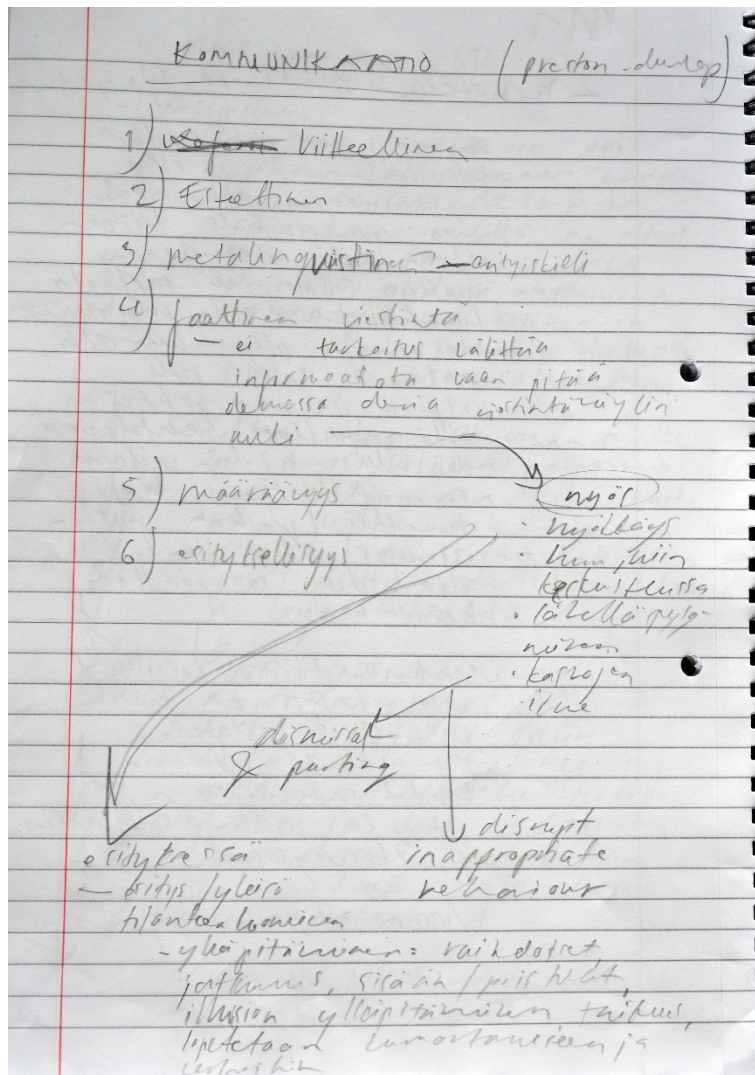 KOMMUNIKAATIO (preston-dunlop)
1) Viitteellinen
2) Esteettinen
3) metalinguistinen – erityiskieli
4) faattinen viestintä
– ei tarkoitus välittää
informaatiota vaan pitää
olemassa olevia viestintäväyliä
auki
5) määräävyys
6) esityksellisyys
myös
· nyökkäys
· hmm, niin
keskustelussa
· lähellä pysy-
minen
· kasvojen
ilme
dismissal
& parting
disrupt
inappropriate
behaviour
esityksessä
– esitys/yleisö
tilanteen luomiseen
– ylläpitäminen: vaihdokset,
jatkumus, sisään/pois
illusion ylläpitämisen
lopetetaan kumartamiseen ja